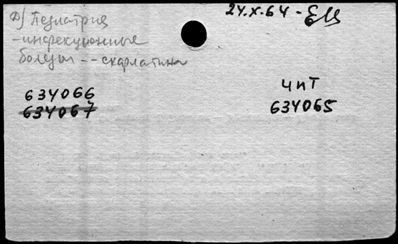 24.X.64 - ЕШ
Д) Педиатрия
- инфекционные
болезни -- скарлатина
ЧИТ
634066
634065
634067